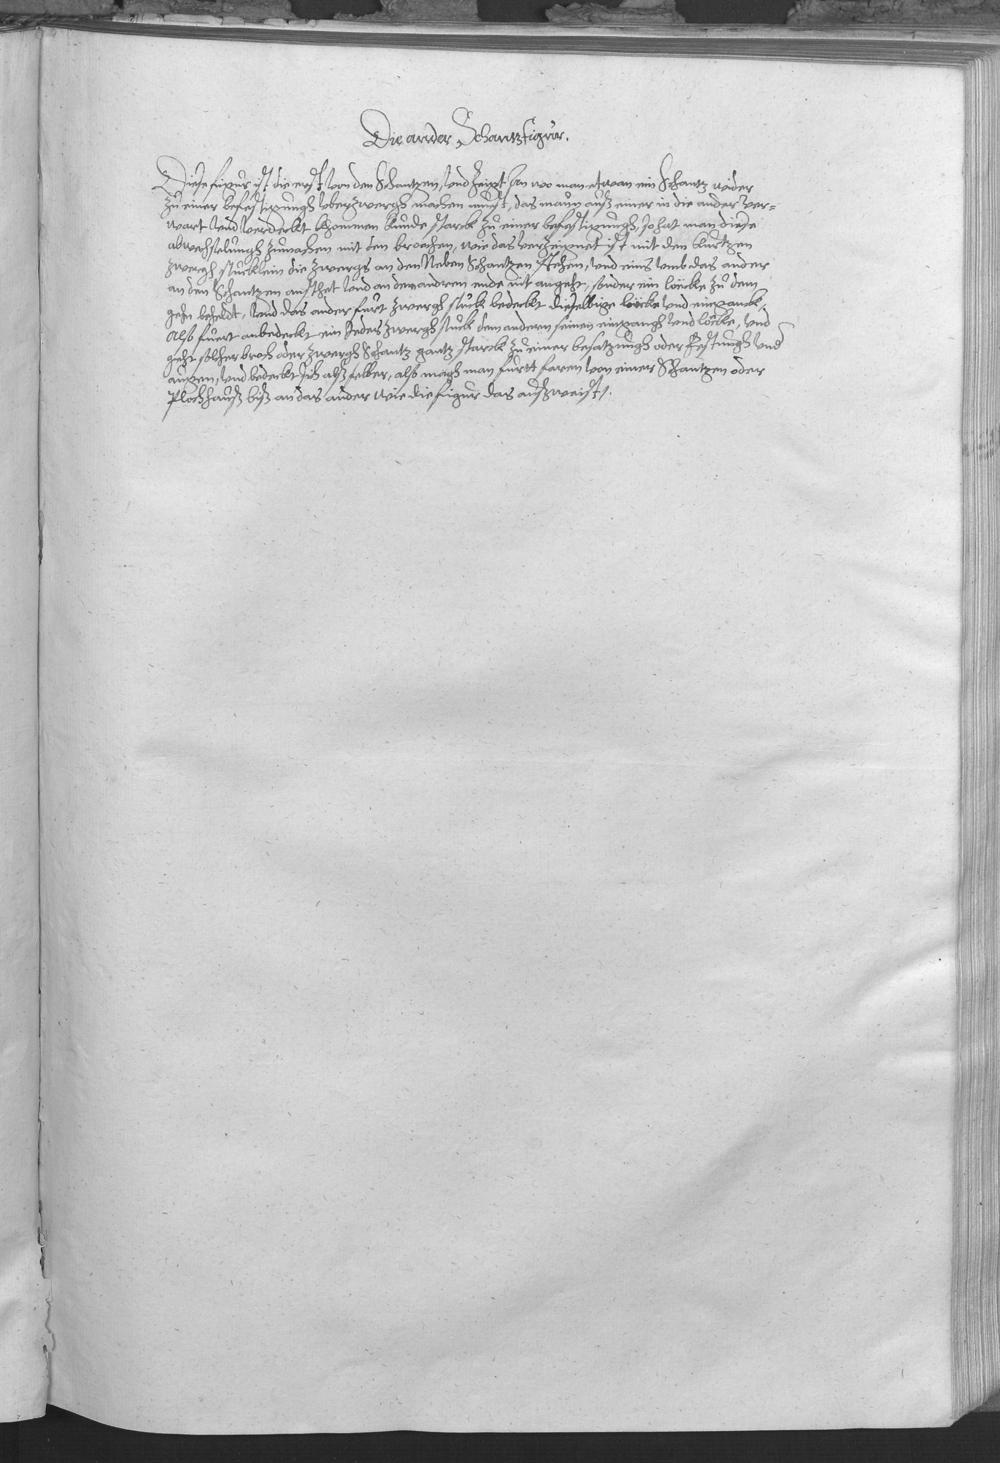 Die ander Schantzfigur.
Diese figur ist die erst von den Schantzen, und zeigt an wo man etwan ein Schantz wider
zu einer befestigungh uberzwergh machen must, das mann auß einer in die ander ver=
wart und verdeckt khommen kunde starck zu einer befestigungh, so hat man diese
abwechselungh zumachen mit den brochen, wie das verzeignet ist mit den kurtzen
zwergh stucklein die zwergs an den Neben Schantzen stehen, und eins umb das ander
an den Schantzen ansthet und an dem andrem ende nit angehet, sonder ein löcke zu dem
gehn beheldt, und das ander furt zwergh stuck bedeckt dieselbige löcke und eingangk,
Also fuert anbedeckt ein Jedes zwergh stuck dem andern seinen eingangh und löcke, und
geht solcher broch oder zwergh Schantz gantz starck zu einer besatzungh oder Festungh und
augen, und bedeckt sich alß selber, also magh man furtt faren von einer Schantzen oder
Plochhauß biß an das ander wie die figur das außweist.